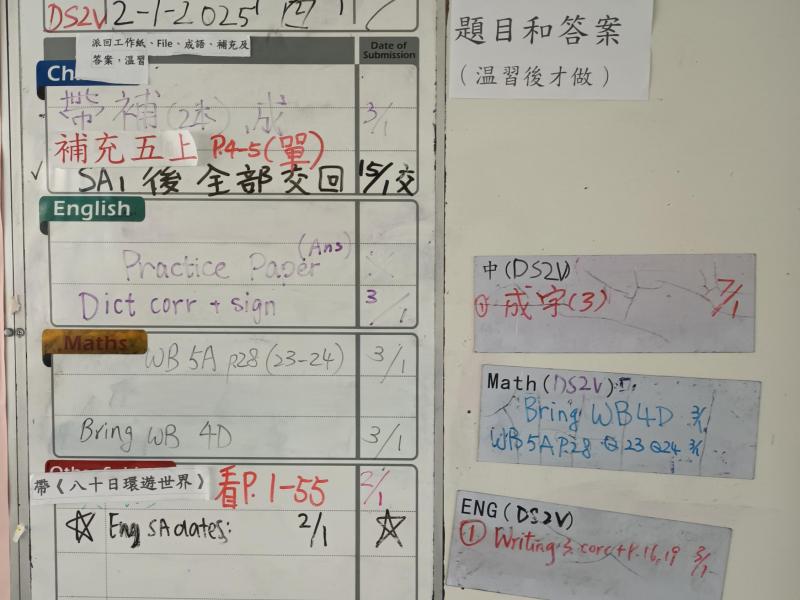 DS2V 2-1-2025
派回工作紙、File、成語、補充及
答案，温習
Date of
Submission
帶補(2本) 3/1
補充五上 P.4-5(單)
✓ SA1 後全部交回 15/1交
English
Practice Paper (Ans)
Dict corr + sign 3/1
Maths
WB 5A p28 (23-24) 3/1
Bring WB 4D 3/1
帶《八十日環遊世界》 看P. 1-55 2/1
☆ Eng SA dates: 2/1 ☆
題目和答案
（温習後才做）
中(DS2V)
① 成字(3) 7/1
Math(DS2V)
Bring WB4D 3/1
WB5A P.28 Q23 Q24 3/1
ENG (DS2V)
① Writing 3 corr + P.16,19 3/1